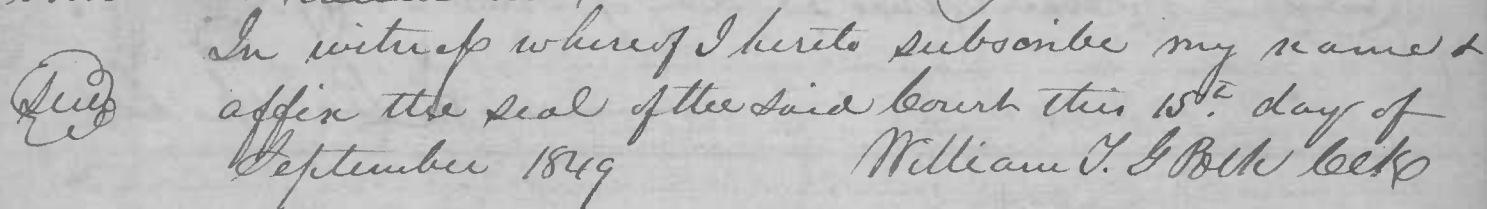 In witness whereof I hereto subscribe my name &
Seal affix the seal of the said Court this 15th. day of
September 1849 William T. G Polk Clk